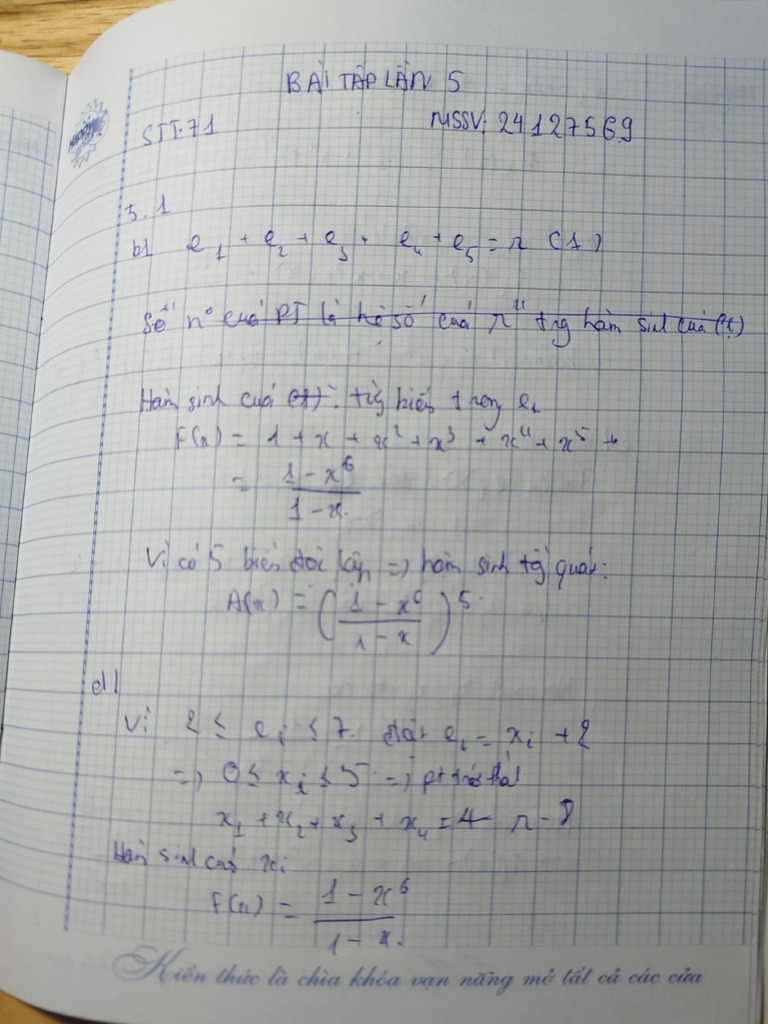 BÀI TẬP LẦN 5
STT.71 MSSV: 24127569
3.1
b) e₁ + e₂ + e₃ + e₄ + e₅ = r (1)
Số nº của PT là hệ số của r trg hàm sinh của (1)
Hàm sinh của (1): từg biến trong eᵢ
F(x) = 1 + x + x² + x³ + x⁴ + x⁵ +
= (1 - x⁶)/(1 - x)
Vì có 5 biến độc lập => hàm sinh tổg quát:
A(x) = ((1 - x⁶)/(1 - x))⁵
d)
Vì 2 ≤ eᵢ ≤ 7. đặt eᵢ = xᵢ + 2
=> 0 ≤ xᵢ ≤ 5 => pt trở thà
x₁ + x₂ + x₃ + x₄ = r - 8
Hàm sinh của xᵢ
F(x) = (1 - x⁶)/(1 - x)
Kiến thức là chìa khóa vạn năng mở tất cả các cửa